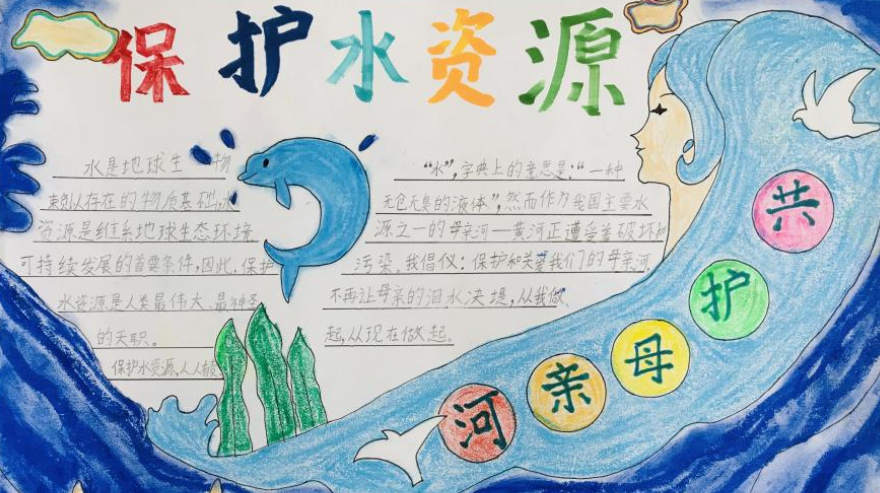 保护水资源
水是地球生物
赖以存在的物质基础,水
资源是维系地球生态环境
可持续发展的首要条件,因此,保护
水资源是人类最伟大、最神圣
的天职。
保护水资源,人人
“水”,字典上的意思是:“一种
无色无臭的液体”,然而作为我国主要水
源之一的母亲河—黄河正遭受着破坏和
污染。我倡仪:保护和关爱我们的母亲河,
不再让母亲的泪水决堤,从我做
起,从现在做起。
共护母亲河